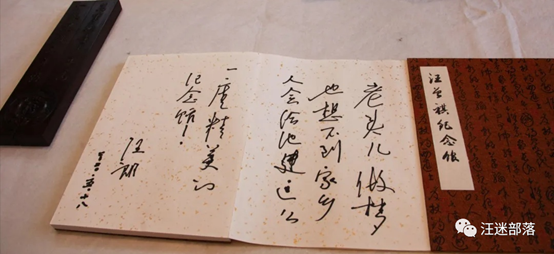 汪曾祺纪念馆
老头儿做梦
也想不到家乡
人会给他建这么
一座精美的
纪念馆!
汪朗
二〇二〇·五·十八
汪迷部落